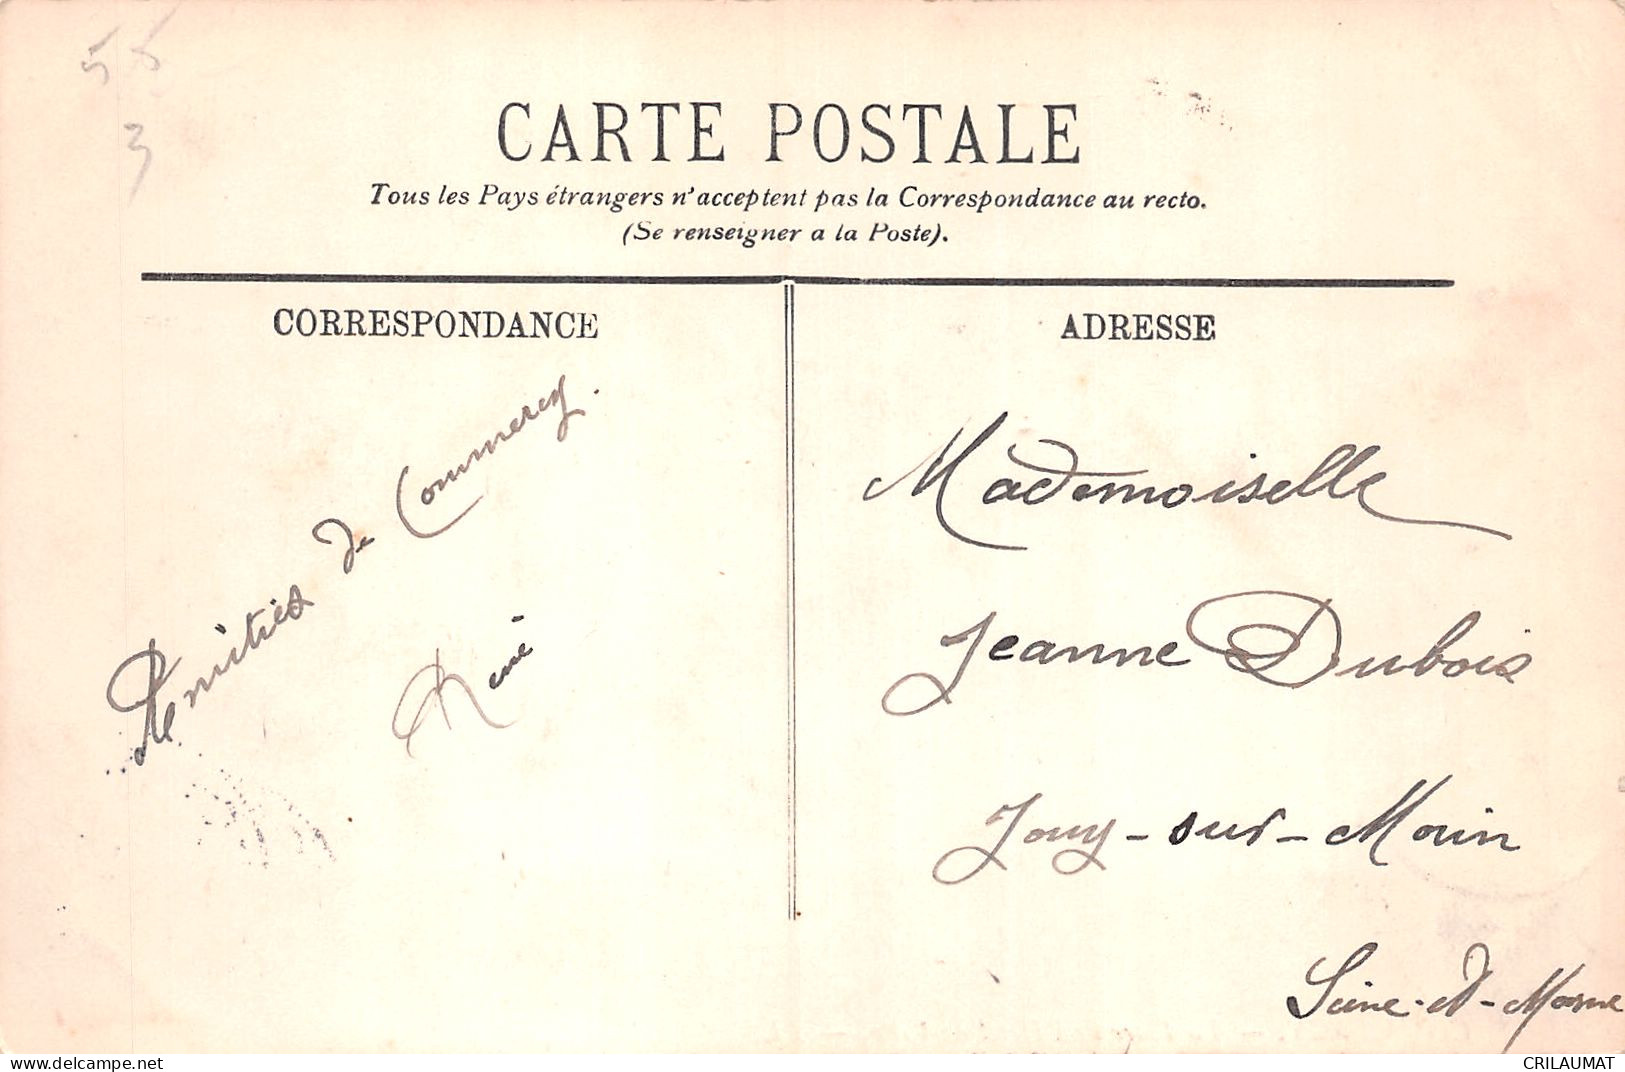 55
3
CARTE POSTALE
Tous les Pays étrangers n'acceptent pas la Correspondance au recto.
(Se renseigner a la Poste).
CORRESPONDANCE
de Commercy.
René
ADRESSE
Mademoiselle
Jeanne Dubois
Jouy-sur-Morin
Seine-et-Marne
www.delcampe.net
CRILAUMAT